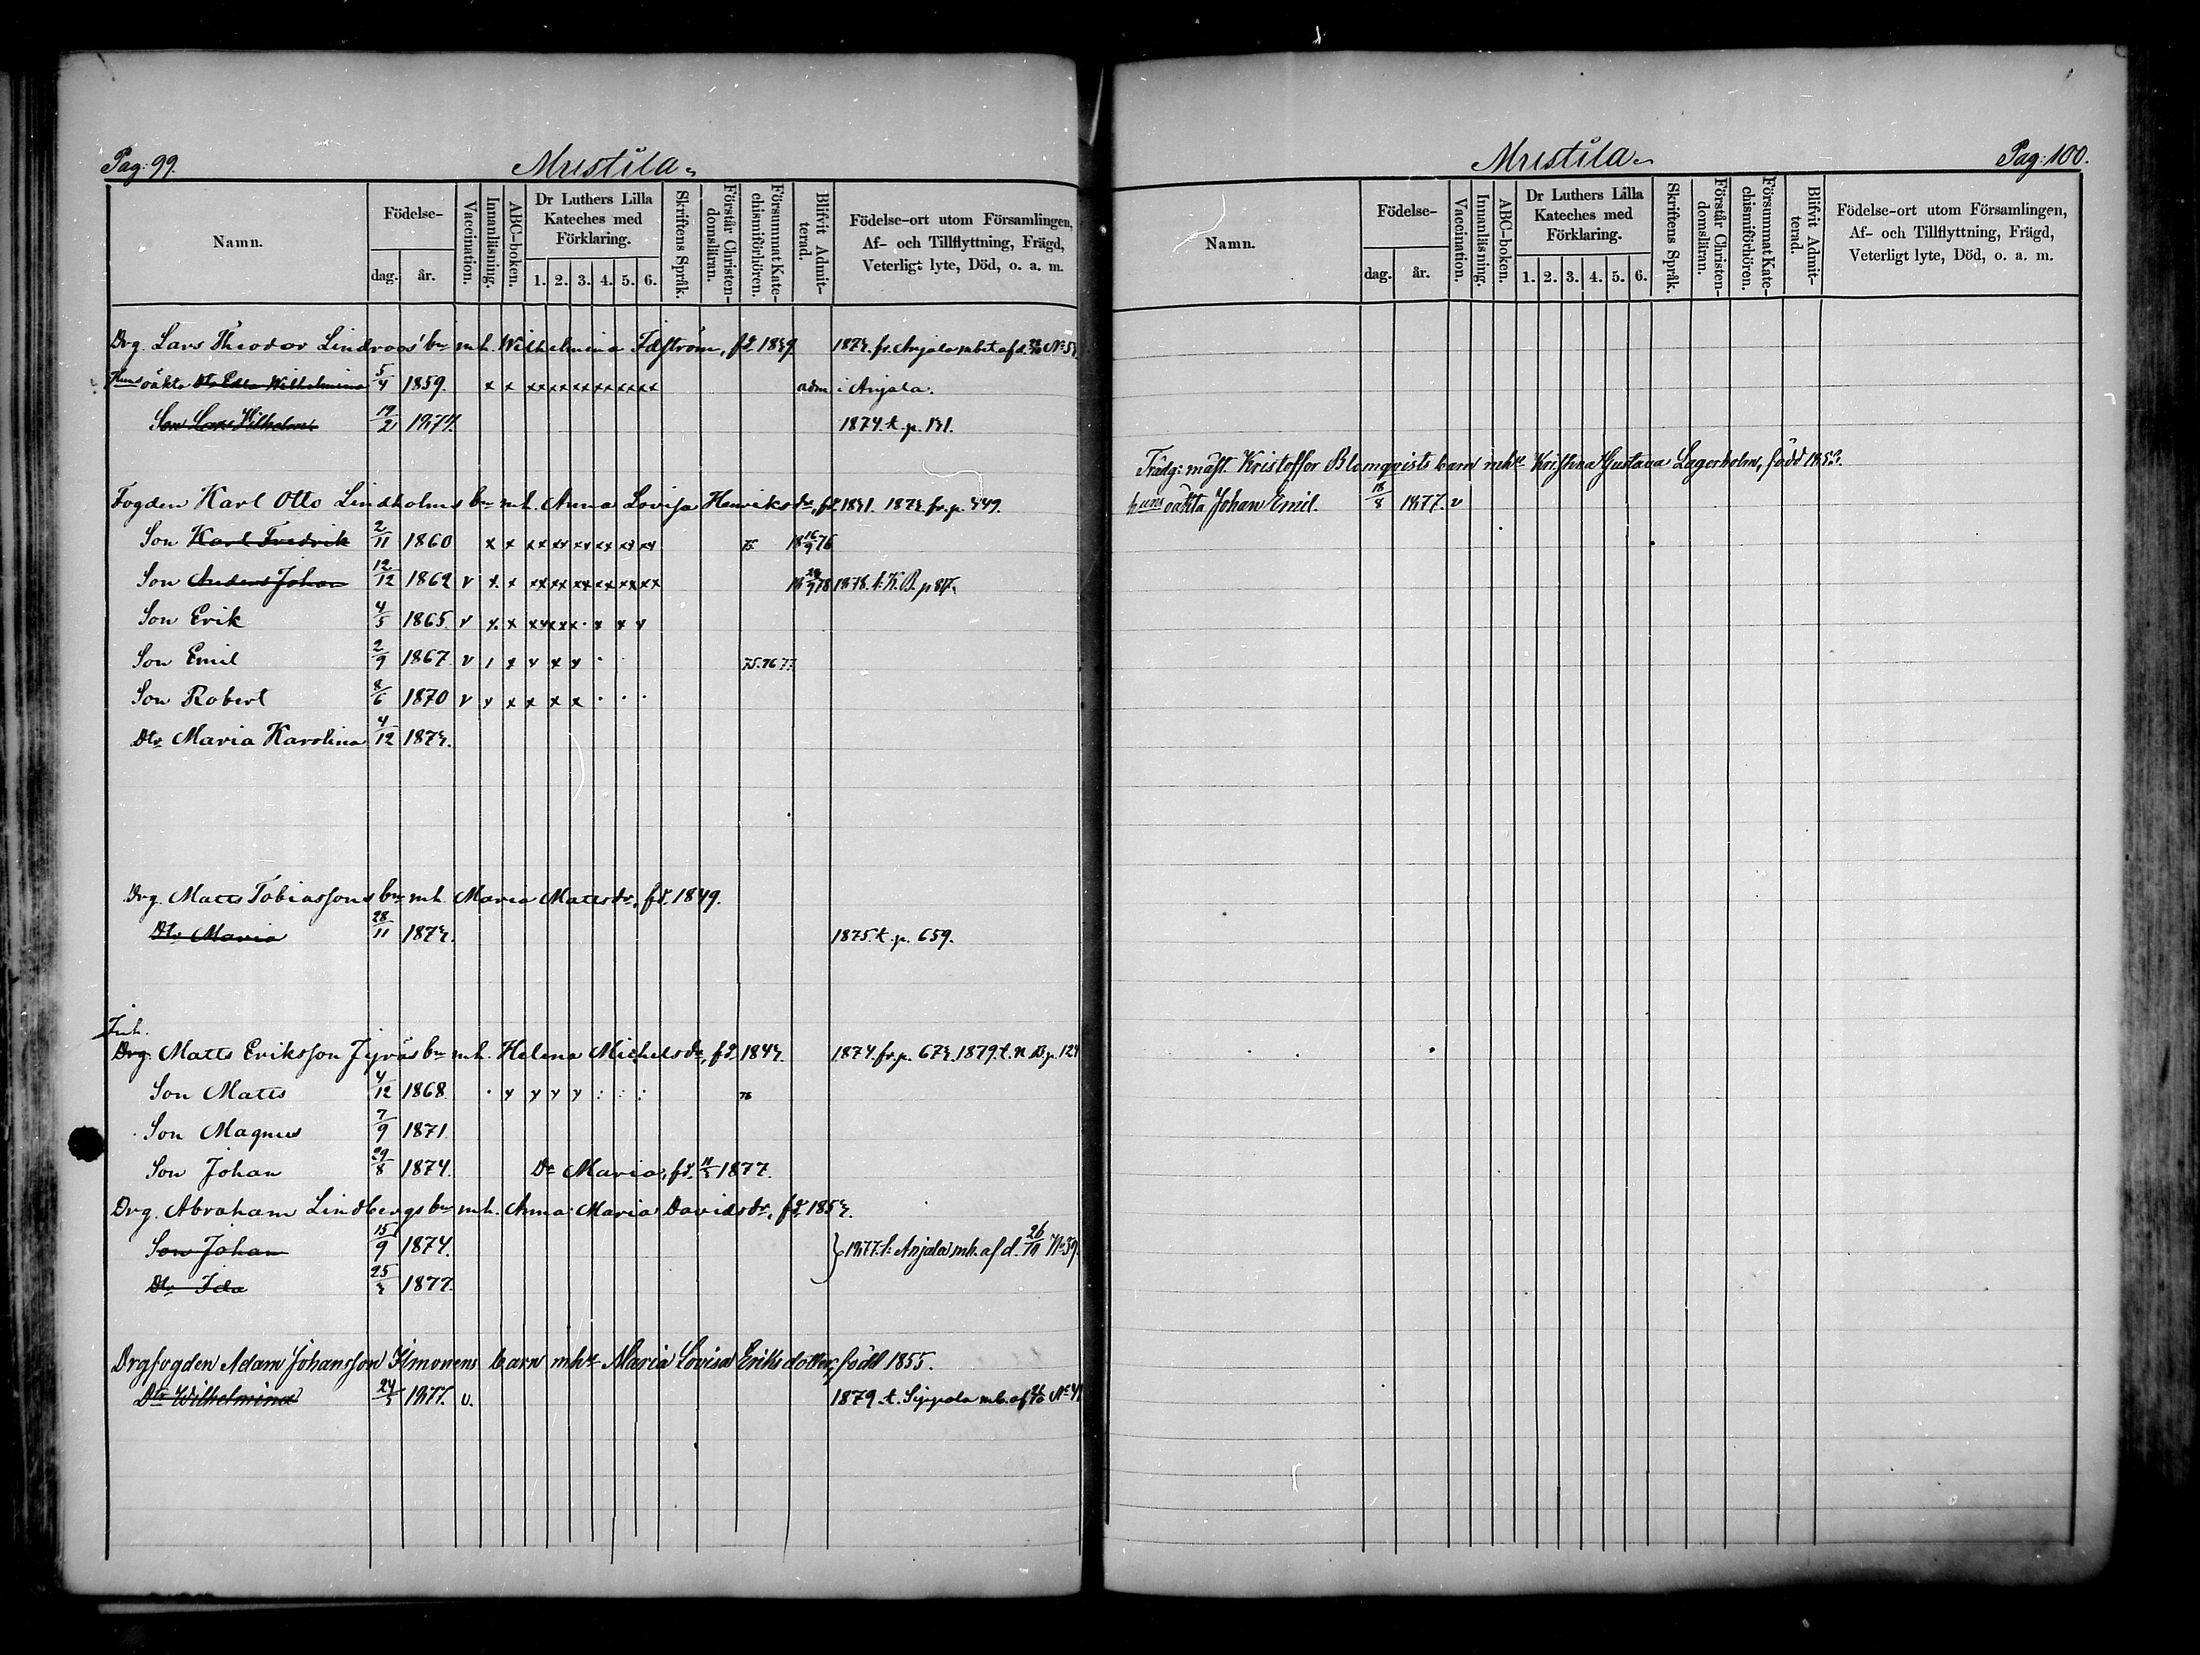 Pag: 99.
Mustila.
Namn.
Födelse-
dag.
år.
Vaccination.
Innanläsning.
ABC-boken.
Dr Luthers Lilla
Kateches med
Förklaring.
1. 2. 3. 4. 5. 6.
Skriftens Språk.
Förstår Christen-
domsläran.
Försummat Kate-
chismiförhören.
Blifvit Admit-
terad.
Födelse-ort utom Församlingen,
Af- och Tillflyttning, Frägd,
Veterligt lyte, Död, o. a. m.
Drg. Lars Theodor Lindroos' bn m.h. Wilhelmina Edström, fd. 1839. 1873. fr. Anjala
Hans oäkta Dtr Edla Wilhelmina 5/4 1859. x x xx xx xx xx xx xx adm. i Anjala.
Son Lars Wilhelm 19/2 1874. 1874. t. p. 131.
Fogden Karl Otto Lindholms bn m.h. Anna Lovisa Henriksdr, fd. 1831. 1873. fr. p. 449.
Son Karl Fredrik 2/11 1860 x x xx xx xx xx xx xx 75. 18 16/9 76
Son Anders Johan 12/12 1862 v x x xx xx xx xx xx xx 1878. t. K. B. p 817.
Son Erik 4/5 1865. v x x xx xx x x x
Son Emil 2/9 1867. v x x x x 75. 76. 77.
Son Robert 8/6 1870 v x x x x x
Dtr Maria Karolina 4/12 1873.
Drg. Matts Tobiassons bn m.h. Maria Mattsdr, fd. 1849.
Dtr Maria 28/11 1873. 1875. t. p. 659.
Inh.
Drg. Matts Eriksson Jyräs bn m.h. Helena Michelsdr, fd. 1843. 1874. fr. p. 673. 1879. t. N. B. p. 124
Son Matts 4/12 1868. x x x x 76
Son Magnus 7/9 1871.
Son Johan 29/8 1874. Dr Maria, fd. 11/3 1877.
Drg. Abraham Lindbergs bn m.h. Anna Maria Davidsdr, fd. 1853.
Son Johan 15/9 1874. } 1877. t. Anjala mb. af d. 26/10 No 39.
Dtr Ida 25/3 1877.
Drgfogden Adam Johansson Ilmonens barn mhu Maria Lovisa Eriksdotter, född 1855.
Dtr Wilhelmina 24/3 1877. v. 1879. t. Sippola mb. af 26/10 No 41
Mustila.
Pag: 100.
Namn.
Födelse-
dag.
år.
Vaccination.
Innanläsning.
ABC-boken.
Dr Luthers Lilla
Kateches med
Förklaring.
1. 2. 3. 4. 5. 6.
Skriftens Språk.
Förstår Christen-
domsläran.
Försummat Kate-
chismiförhören.
Blifvit Admit-
terad.
Födelse-ort utom Församlingen,
Af- och Tillflyttning, Frägd,
Veterligt lyte, Död, o. a. m.
Trädg: mäst. Kristoffer Blomqvists barn mhu Kristina Gustava Lagerholm, född 1853.
hans oäkta Johan Emil. 18/8 1877. v